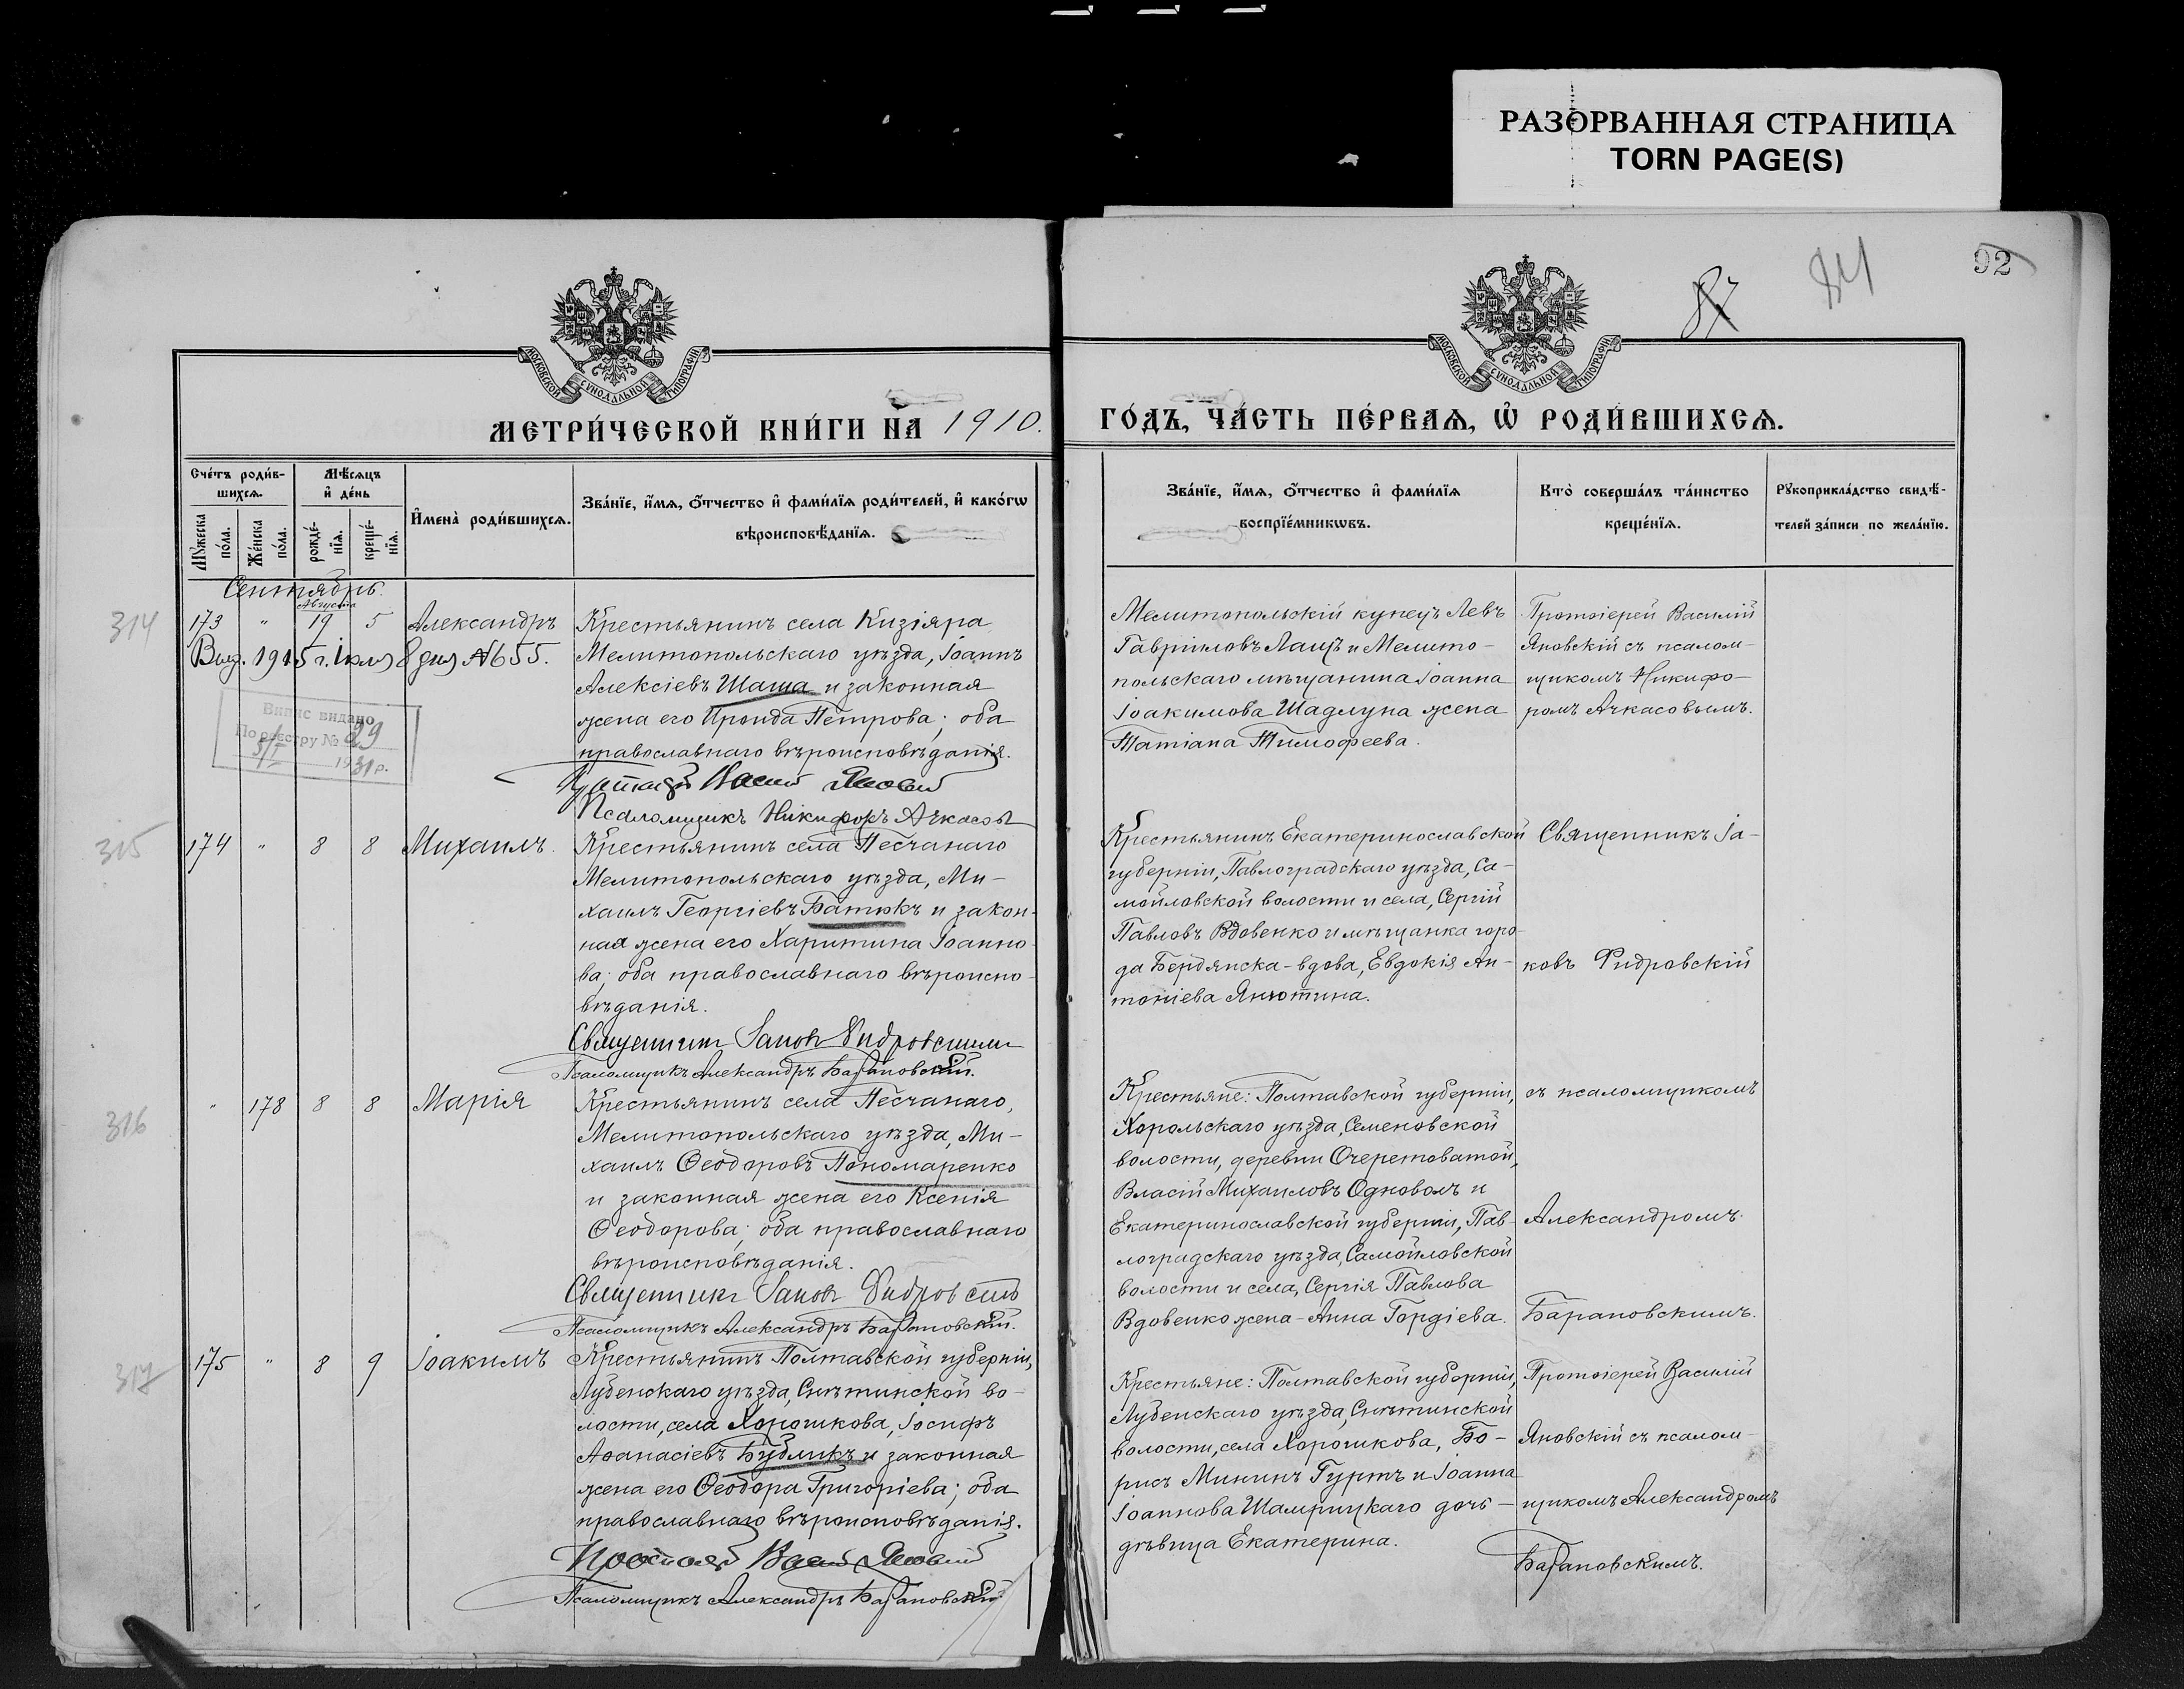 РАЗОРВАННАЯ СТРАНИЦА
TORN PAGE(S)
92
84
87
МОСКОВСКОЙ СѴНОДАЛЬНОЙ ТИПОГРАФІИ
МОСКОВСКОЙ СѴНОДАЛЬНОЙ ТИПОГРАФІИ
МЕТРИ́ЧЕСКОЙ КНИ́ГИ НА 1910.
ГО́ДЪ, ЧА́СТЬ ПЕ́РВАѦ, Ѿ РОДИ́ВШИХСѦ.
Сче́тъ роди́в-
шихсѧ.
Мѣ́сѧцъ
и҆ де́нь
Мꙋ́жеска по́ла.
Же́нска по́ла.
рожде́-
нїѧ.
креще́-
нїѧ.
И҆мена̀ роди́вшихсѧ.
Зва́нїе, и҆́мѧ, ѻ҆́тчество и҆ фами́лїѧ роди́телей, и҆ како́гѡ
вѣроисповѣ́данїѧ.
Зва́нїе, и҆́мѧ, ѻ҆́тчество и҆ фами́лїѧ
воспрїе́мникѡвъ.
Кто̀ соверша́лъ та́инство
креще́нїѧ.
Рꙋкоприкла́дство свидѣ́-
телей за́писи по жела́нїю.
Сентябрь.
Августа
314
173 " 19 5 Александръ
Выд. 1915 г. Іюля 8 дня №655.
Випис видано
По реєстру № 29
5/I 1931 р.
Крестьянинъ села Кизіяра
Мелитопольскаго уѣзда, Іоаннъ
Алексіевъ Шаша и законная
жена его Ироида Петрова; оба
православнаго вѣроисповѣданія.
Протоіерей Василій Яновскій
Псаломщикъ Никифоръ Ачкасовъ
Мелитопольскій купецъ Левъ
Гавріиловъ Лащъ и Мелито-
польскаго мѣщанина Іоанна
Іоакимова Шадлуна жена
Татіана Тимофеева.
Протоіерей Василій
Яновскій съ псалом-
щикомъ Никифо-
ромъ Ачкасовымъ.
315
174 " 8 8 Михаилъ.
Крестьянинъ села Песчанаго
Мелитопольскаго уѣзда, Ми-
хаилъ Георгіевъ Батюкъ и закон-
ная жена его Харитина Іоанно-
ва; оба православнаго вѣроиспо-
вѣданія.
Священникъ Іаковъ Фидровскій
Псаломщикъ Александръ Барановскій.
Крестьянинъ Екатеринославской
губерніи, Павлоградскаго уѣзда, Са-
мойловской волости и села, Сергій
Павловъ Вдовенко и мѣщанка горо-
да Бердянска-вдова, Евдокія Ан-
тоніева Янютина.
Священникъ Іа-
ковъ Фидровскій
316
" 178 8 8 Марія
Крестьянинъ села Песчанаго,
Мелитопольскаго уѣзда, Ми-
хаилъ Ѳеодоровъ Пономаренко
и законная жена его Ксенія
Ѳеодорова; оба православнаго
вѣроисповѣданія.
Священникъ Іаковъ Фидровскій
Псаломщикъ Александръ Барановскій.
Крестьяне: Полтавской губерніи,
Хорольскаго уѣзда, Семеновской
волости, деревни Очеретоватой,
Власій Михаиловъ Одноволъ и
Екатеринославской губерніи, Пав-
лоградскаго уѣзда, Самойловской
волости и села, Сергія Павлова
Вдовенко жена-Анна Гордіева.
съ псаломщикомъ
Александромъ
Барановскимъ.
317
175 " 8 9 Іоакимъ
Крестьянинъ Полтавской губерніи,
Лубенскаго уѣзда, Снѣтинской во-
лости, села Хорошкова, Іосифъ
Аѳанасіевъ Бубликъ и законная
жена его Ѳеодора Григоріева; оба
православнаго вѣроисповѣданія.
Протоіерей Василій Яновскій
Псаломщикъ Александръ Барановскій.
Крестьяне: Полтавской губерніи,
Лубенскаго уѣзда, Снѣтинской
волости, села Хорошкова, Бо-
рисъ Мининъ Гуртъ и Іоанна
Іоаннова Шамрицкаго дочь-
дѣвица Екатерина.
Протоіерей Василій
Яновскій съ псалом-
щикомъ Александромъ
Барановскимъ.